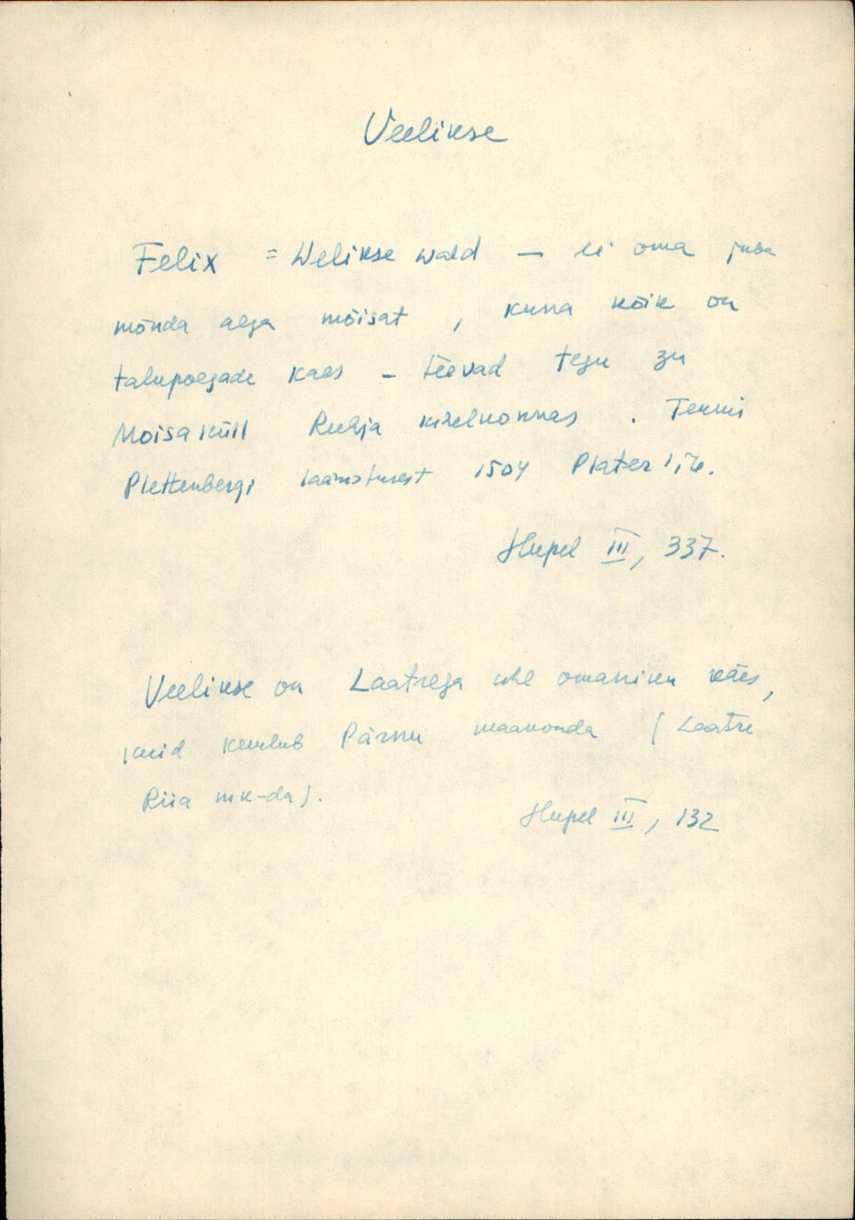 Veelikse
Felix = Welikse wald – ei oma juba
mõnda aega mõisat, kuna kõik on
talupoegade kaes – teevad tegu zu
Moisaküll Ruhja kihelkonnas. Termi
Plettenbergi laanistusest 1504 Plater
Hupel III, 337.
Veelikse on Laatrega ühe omaniku käes,
kuid kuulub Pärnu maakonda (Laatre
Riia mk-da).
Hupel III, 132